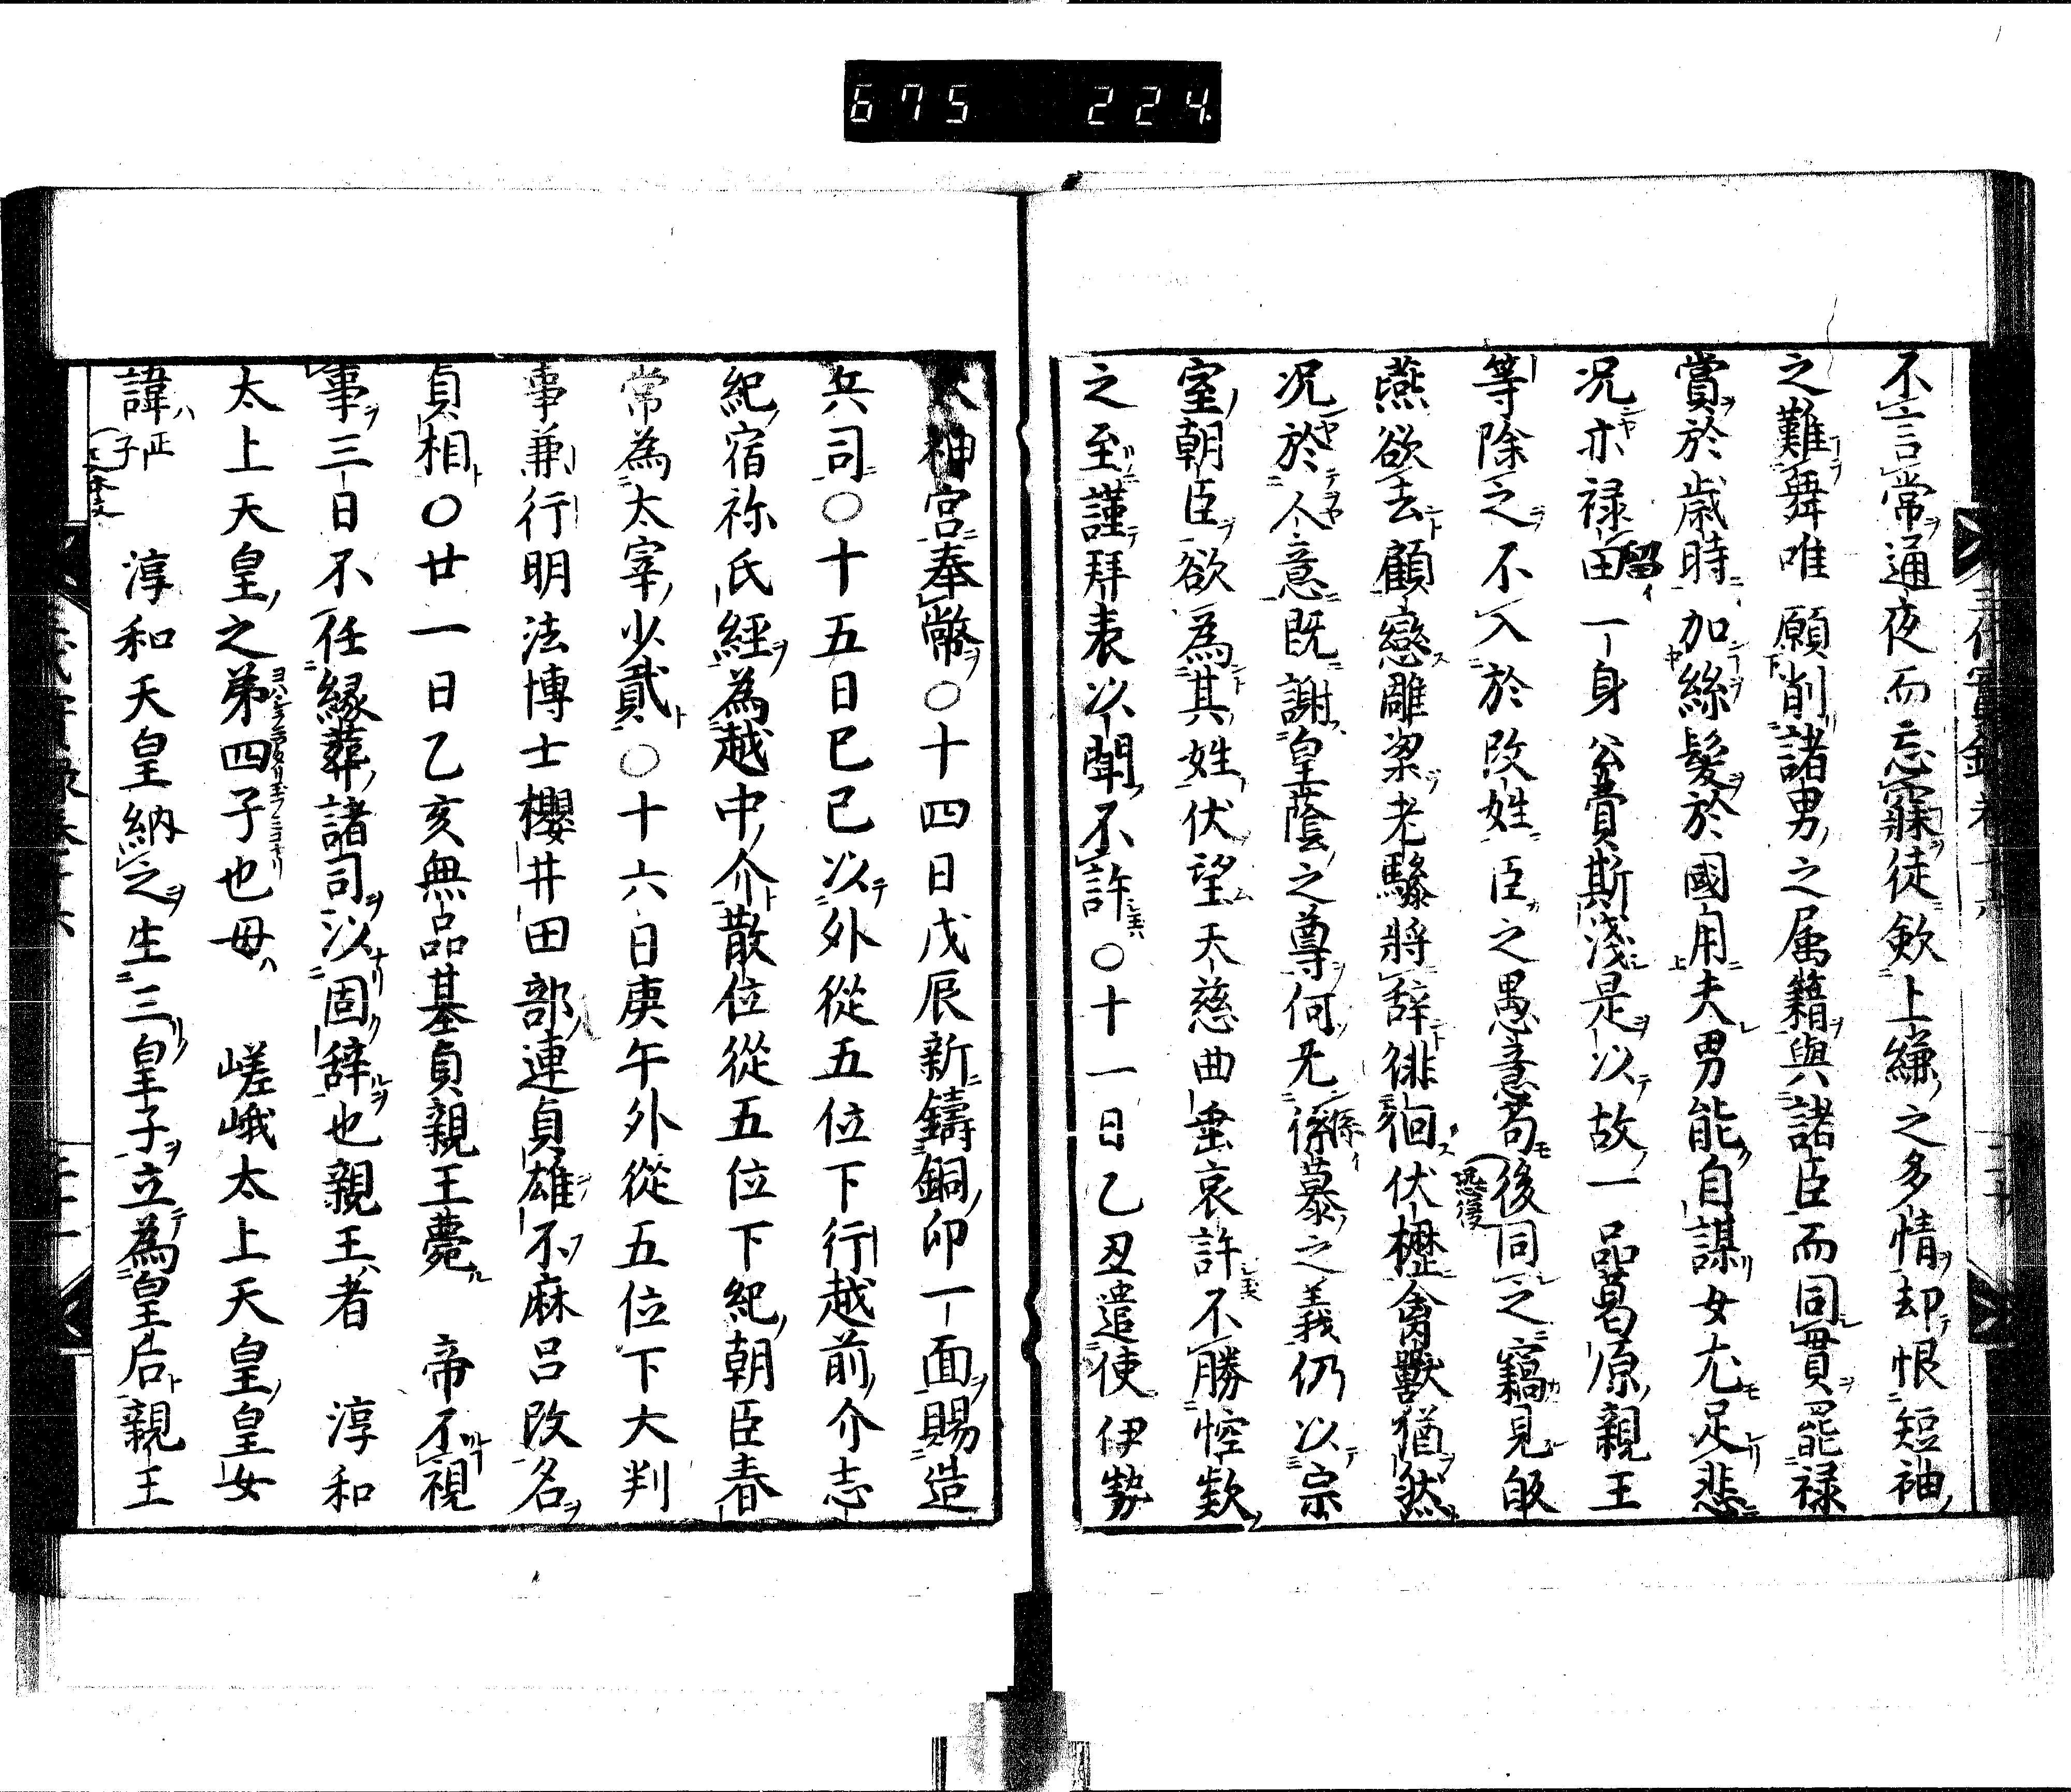 675 224
不言常通夜而忘寐徒欸上縑之多情却恨短袖
之難舞唯願削諸男之属籍與諸臣而同貫罷禄
賞於歳時加絲髮於國用夫男能自謀女尤足悲
況亦禄田一身公費斯淺是以故一品葛原親王
等除之不入於改姓臣之愚意苟後同之竊見
燕欲去顧戀雕梁老驂將辞徘徊伏櫪禽獸猶然
況於人意既謝皇蔭之尊何无係慕之義仍以宗
室朝臣欲為其姓伏望天慈曲垂哀許不勝悾款
之至謹拜表以聞不許〇十一日乙丑遣使伊勢
大神宮奉幣〇十四日戊辰新鑄銅印一面賜造
兵司〇十五日己巳以外從五位下行越前介志
紀宿祢氏經為越中介散位從五位下紀朝臣春
常為太宰少貳〇十六日庚午外從五位下大判
事兼行明法博士櫻井田部連貞雄不麻呂改名
貞相〇廿一日乙亥無品基貞親王薨 帝不視
事三日不任縁葬諸司以固辞也親王者 淳和
太上天皇之第四子也母 嵯峨太上天皇皇女
諱正子 淳和天皇納之生三皇子立為皇后親王